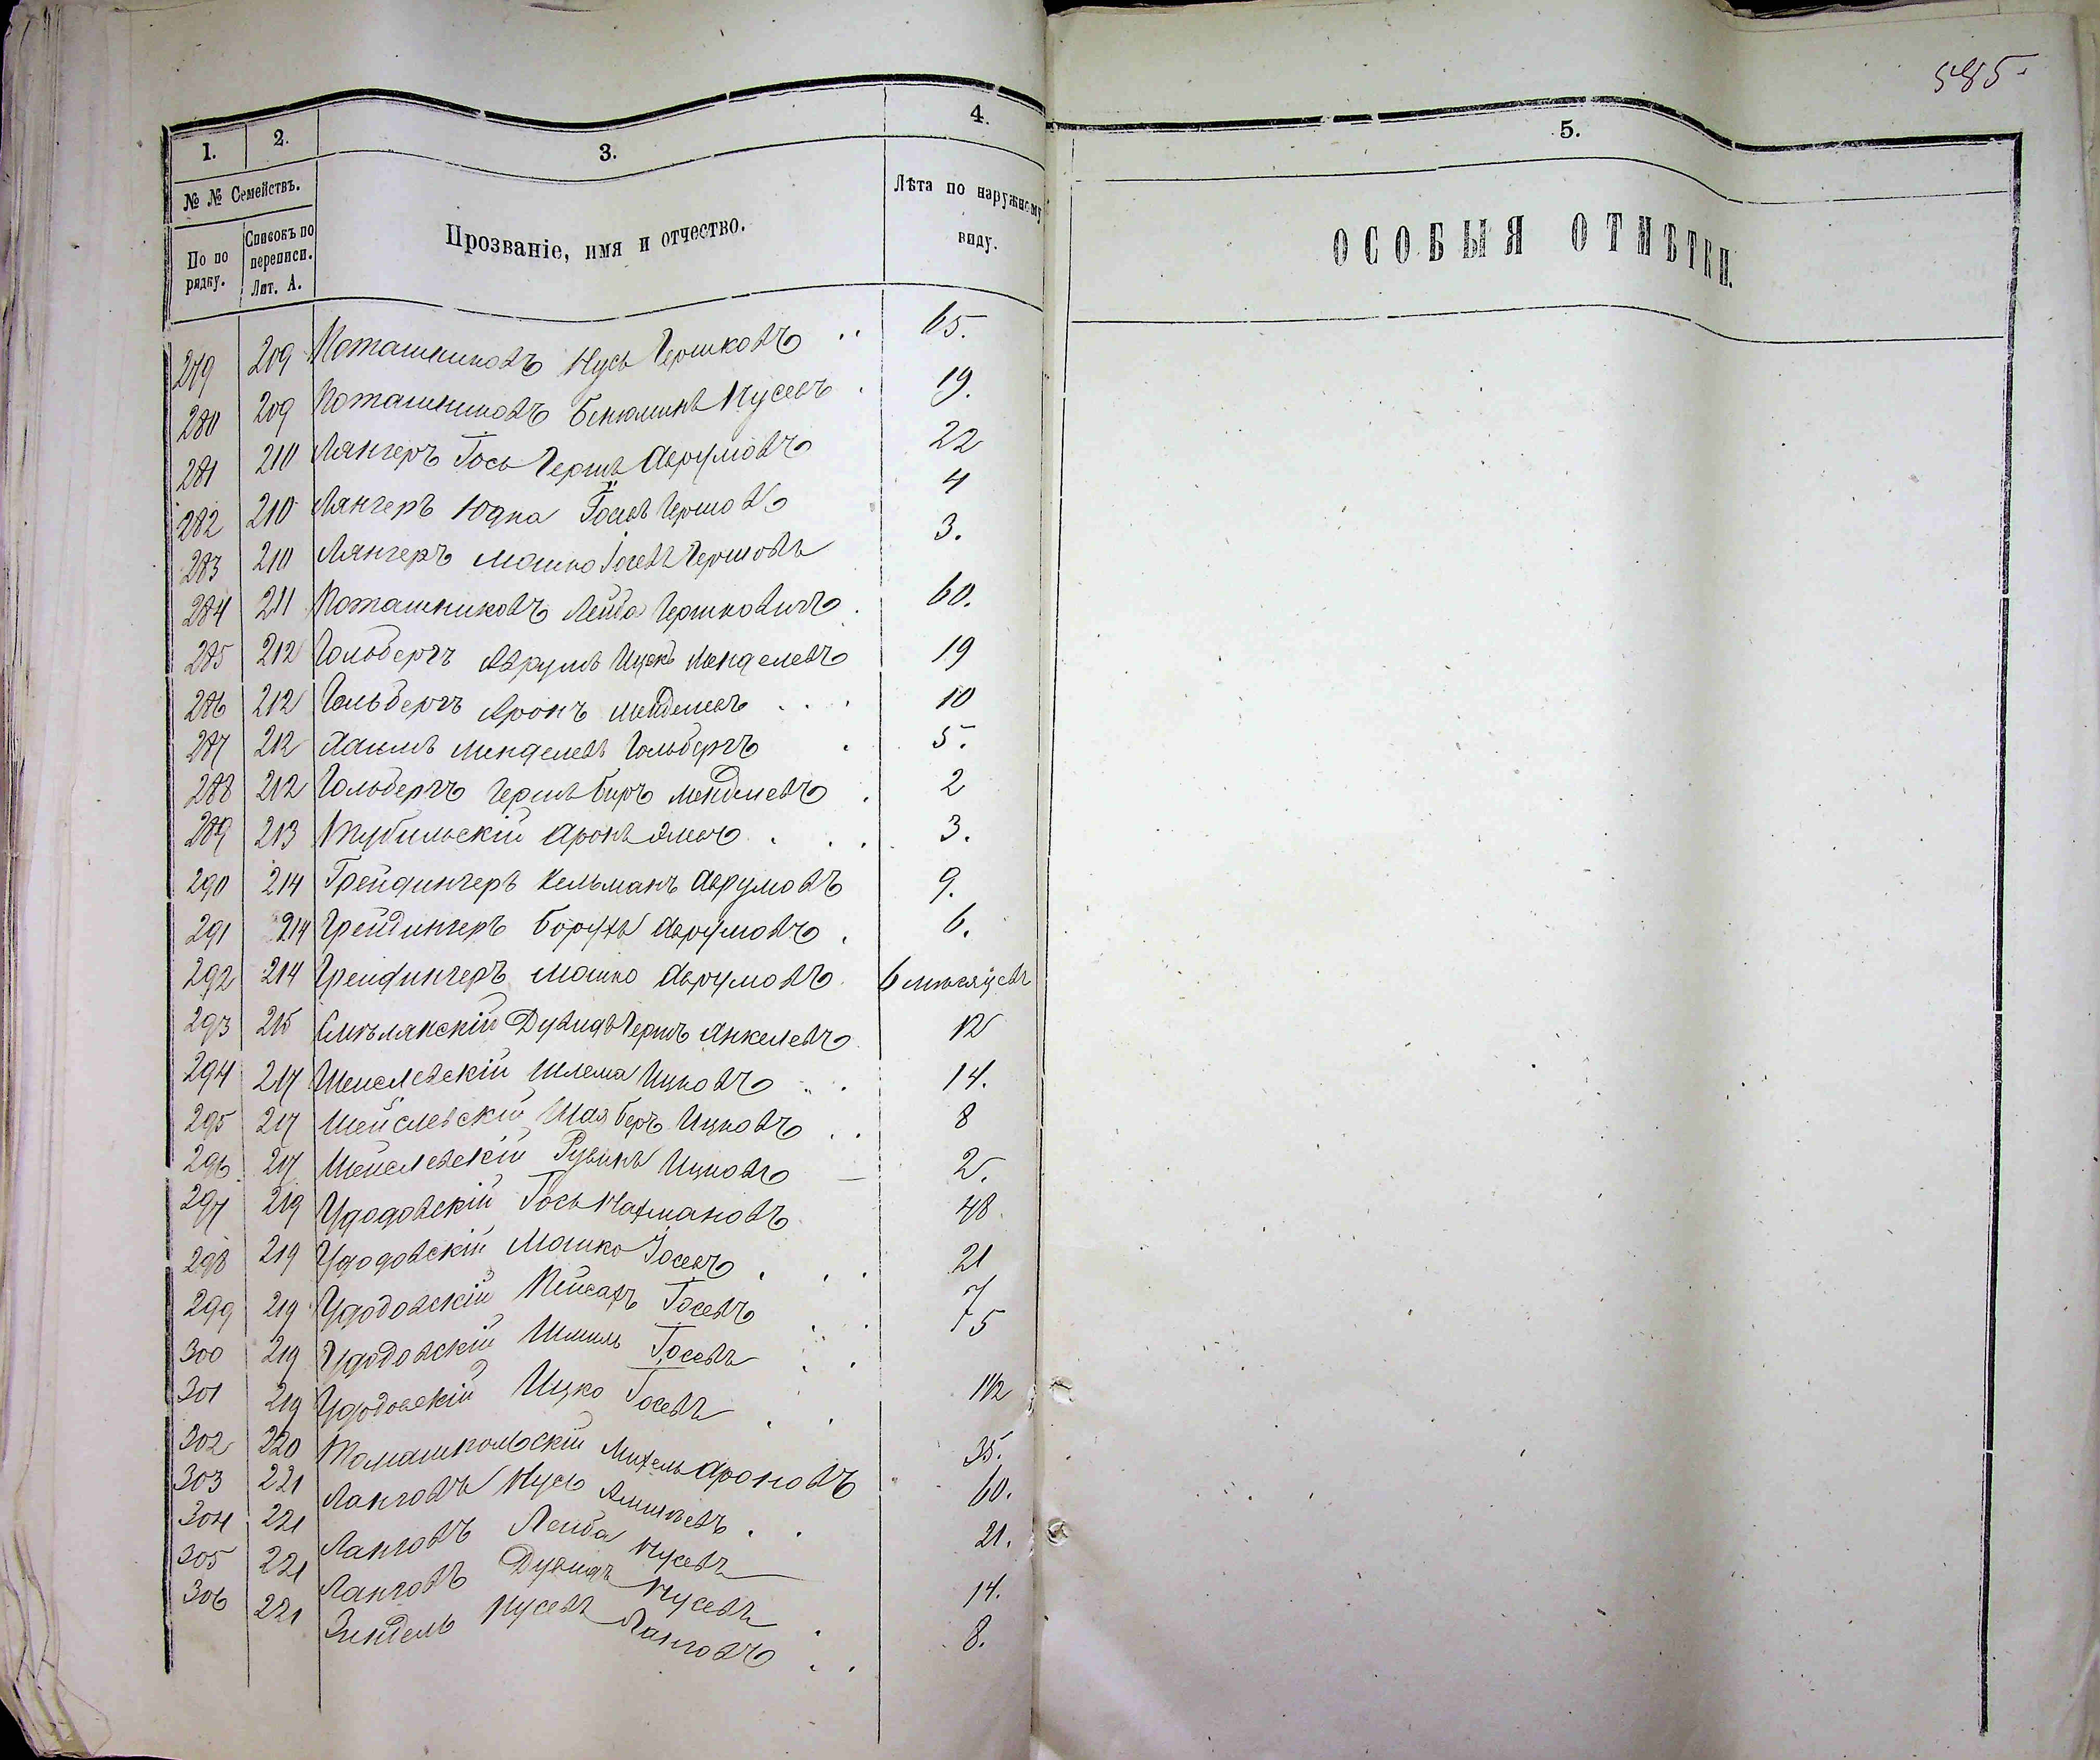 585.
1.
2.
3.
4.
5.
№ № Семействъ.
По по рядку.
Списокъ по переписи. Лит. А.
Прозваніе, имя и отчество.
Лѣта по наружному виду.
ОСОБЫЯ ОТМѢТКИ.
279 209 Поташниковъ Нусь Гершковъ 65.
280 209 Поташниковъ Бенюминъ Нусевъ 19.
281 210 Лянгеръ Іось Гершъ Аврумовъ 22
282 210 Лянгеръ Юдка Іосевъ Гершовъ 4
283 210 Лянгеръ Мошко Іосевъ Гершовъ 3.
284 211 Поташниковъ Лейба Гершковичъ 60.
285 212 Гольбергъ Аврумъ Ицекъ Менделевъ 19
286 212 Гольбергъ Аронъ Менделевъ 10
287 212 Хаимъ Менделевъ Гольбергъ 5.
288 212 Гольбергъ Гершъ Беръ Менделевъ 2
289 213 Трубильскій Аронъ 3.
290 214 Грейдингеръ Кельманъ Аврумовъ 9.
291 214 Грейдингеръ Борухъ Аврумовъ 6.
292 214 Грейдингеръ Мошко Аврумовъ 6 мѣсяцевъ
293 215 Смѣлянскій Дувидъ Гершъ Янкелевъ 12
294 217 Шейслевскій Шлема Ицковъ 14.
295 217 Шейслевскій Шая Беръ Ицковъ 8
296 217 Шейслевскій Рувинъ Ицковъ 2.
297 219 Удодовскій Іось Нахмановъ 48
298 219 Удодовскій Мошко Іосевъ 21
299 219 Удодовскій Пейсахъ Іосевъ 7
300 219 Удодовскій Шмиль Іосевъ 5
301 219 Удодовскій Ицко Іосевъ 1 1/2
302 220 Томашпольскій Михель Ароновъ 35.
303 221 Ланговъ Нусь 60.
304 221 Ланговъ Лейба Нусевъ 21.
305 221 Ланговъ Дувидъ Нусевъ 14.
306 221 Зиндель Нусевъ Ланговъ 8.